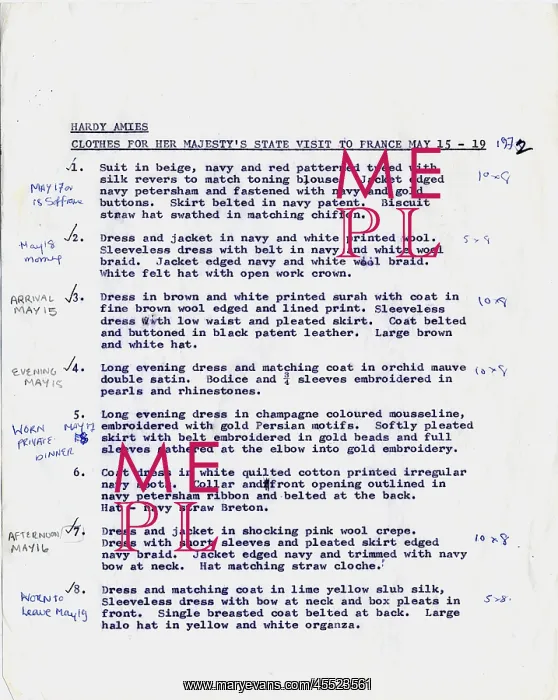 HARDY AMIES
CLOTHES FOR HER MAJESTY'S STATE VISIT TO FRANCE MAY 15 - 19 1972
√1. Suit in beige, navy and red patterned tweed with
silk revers to match toning blouse. Jacket edged
navy petersham and fastened with navy and gold
buttons. Skirt belted in navy patent. Biscuit
straw hat swathed in matching chiffon.
MAY 17 or
18
10x8
√2. Dress and jacket in navy and white printed wool.
Sleeveless dress with belt in navy and white wool
braid. Jacket edged navy and white wool braid.
White felt hat with open work crown.
May 18
morning
√3. Dress in brown and white printed surah with coat in
fine brown wool edged and lined print. Sleeveless
dress with low waist and pleated skirt. Coat belted
and buttoned in black patent leather. Large brown
and white hat.
ARRIVAL
MAY 15
√4. Long evening dress and matching coat in orchid mauve
double satin. Bodice and ¾ sleeves embroidered in
pearls and rhinestones.
EVENING
MAY 15
5. Long evening dress in champagne coloured mousseline,
embroidered with gold Persian motifs. Softly pleated
skirt with belt embroidered in gold beads and full
sleeves gathered at the elbow into gold embroidery.
WORN MAY 17
PRIVATE
DINNER
6. Coat dress in white quilted cotton printed irregular
navy spots. Collar and front opening outlined in
navy petersham ribbon and belted at the back.
Hat - navy straw Breton.
√7. Dress and jacket in shocking pink wool crepe.
Dress with short sleeves and pleated skirt edged
navy braid. Jacket edged navy and trimmed with navy
bow at neck. Hat matching straw cloche.
AFTERNOON
MAY 16
10 x 8
√8. Dress and matching coat in lime yellow slub silk,
Sleeveless dress with bow at neck and box pleats in
front. Single breasted coat belted at back. Large
halo hat in yellow and white organza.
WORN TO
Leave May 19
5x8.
ME
PL
ME
PL
www.maryevans.com/45523561